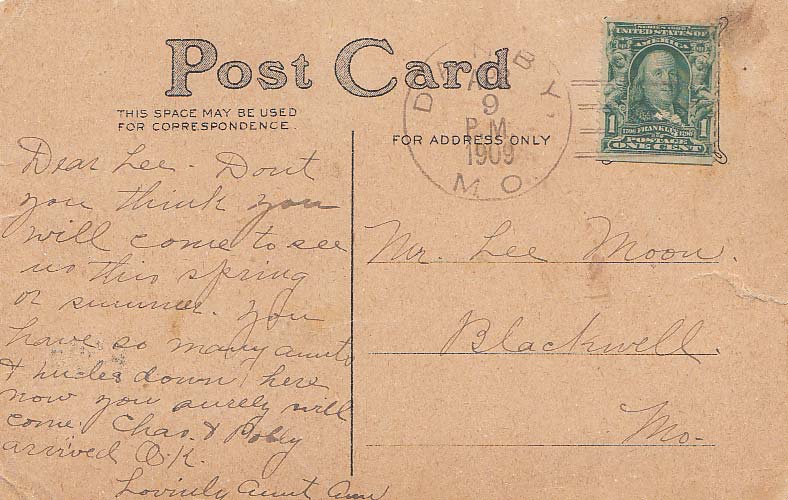 Post Card
THIS SPACE MAY BE USED
FOR CORRESPONDENCE.
FOR ADDRESS ONLY
DENBY,
9
P.M.
1909
MO.
SERIES 1902
UNITED STATES OF
AMERICA
1 FRANKLIN 1
POSTAGE
ONE CENT
Dear Lee. Dont
you think you
will come to see
us this spring
or summer. You
have so many aunts
& uncles down here
now you surely will
come. Chas. &
arrived O.K.
Lovinly Aunt Ann
Mr. Lee Moon.
Blackwell.
Mo.